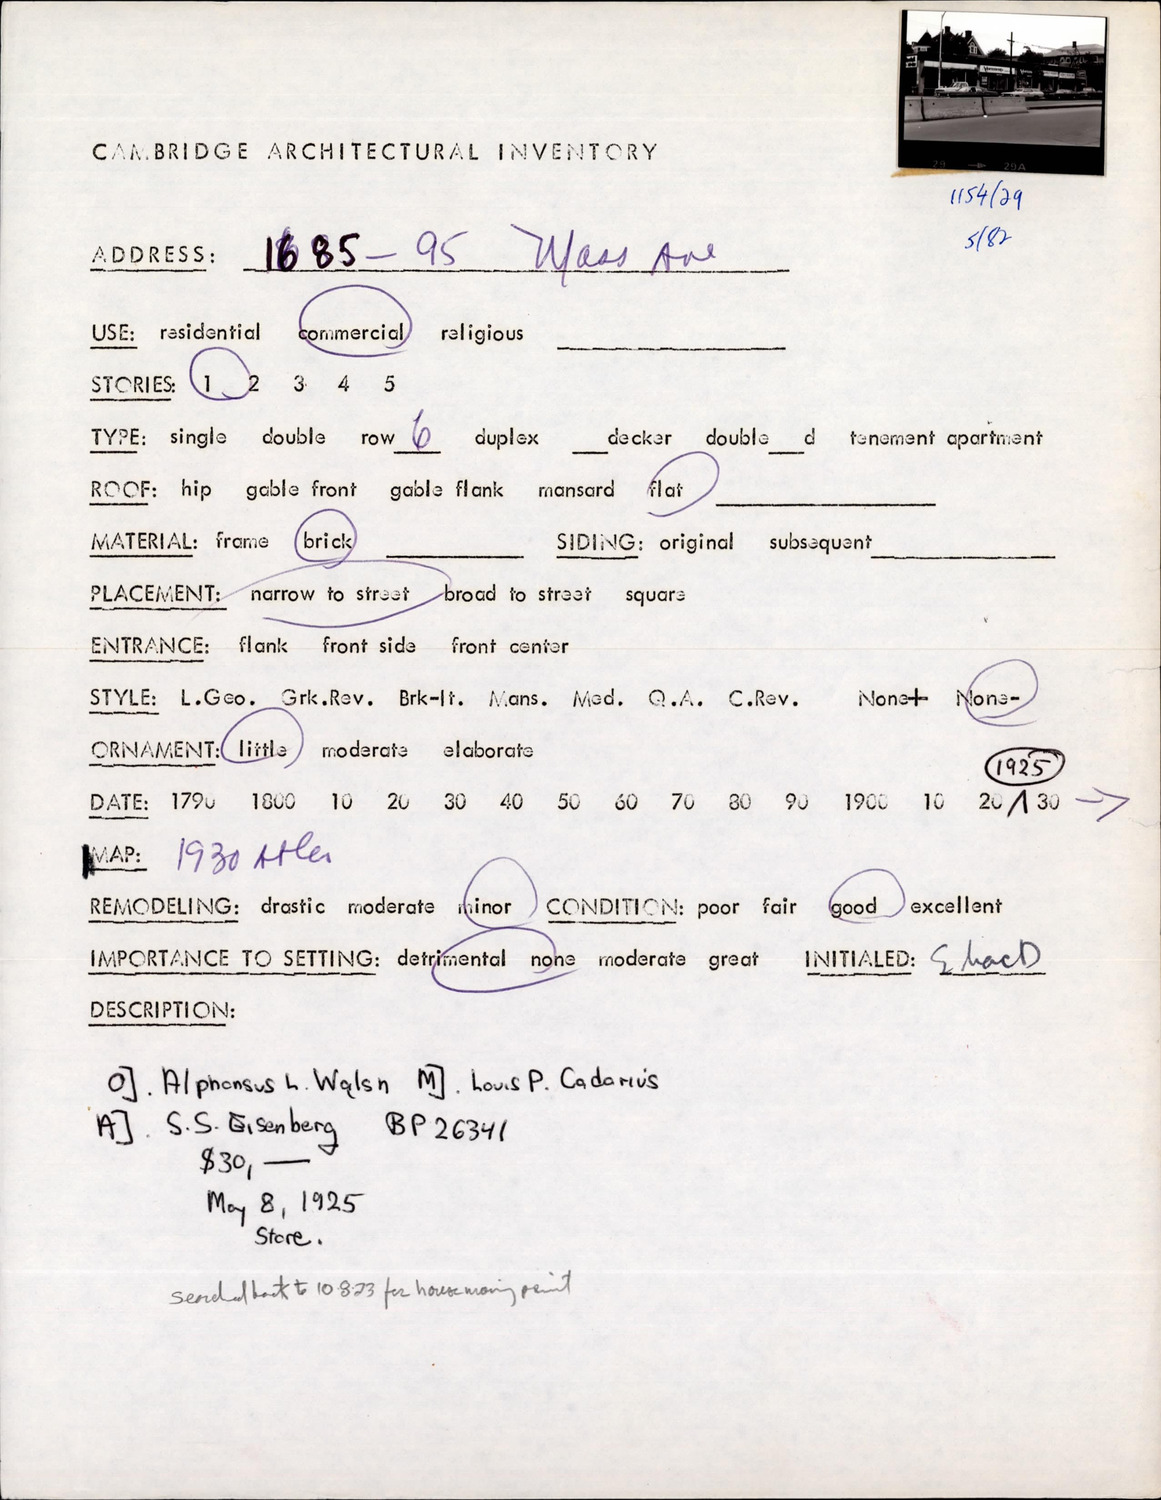 29 29A
1154/29
5/82
CAMBRIDGE ARCHITECTURAL INVENTORY
ADDRESS: 1685-95 Mass Ave
USE: residential commercial religious
STORIES: 1 2 3 4 5
TYPE: single double row 6 duplex __decker double__d tenement apartment
ROOF: hip gable front gable flank mansard flat
MATERIAL: frame brick SIDING: original subsequent
PLACEMENT: narrow to street broad to street square
ENTRANCE: flank front side front center
STYLE: L.Geo. Grk.Rev. Brk-It. Mans. Med. Q.A. C.Rev. None+ None-
ORNAMENT: little moderate elaborate
1925
DATE: 1790 1800 10 20 30 40 50 60 70 80 90 1900 10 20 30 →
MAP: 1930 Atlas
REMODELING: drastic moderate minor CONDITION: poor fair good excellent
IMPORTANCE TO SETTING: detrimental none moderate great INITIALED:
DESCRIPTION:
O]. Alphonsus L. Walsh M]. Louis P. Cadarius
A]. S.S. Eisenberg BP 26341
$30,—
May 8, 1925
Store.
searched back to 10-8-23 for house moving permit